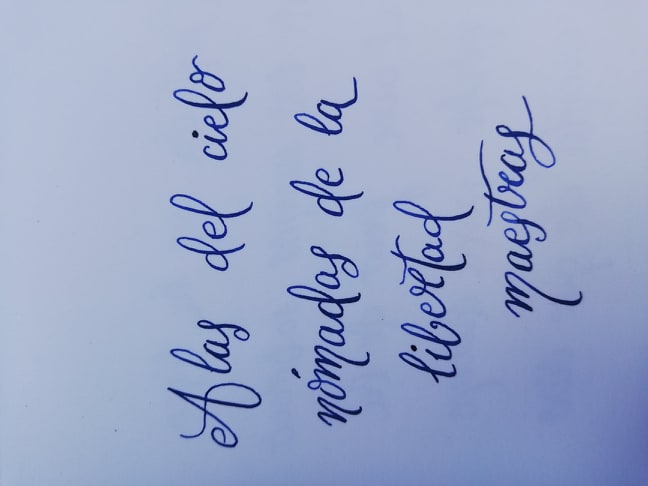 A las del cielo
nómadas de la
libertad
maestras